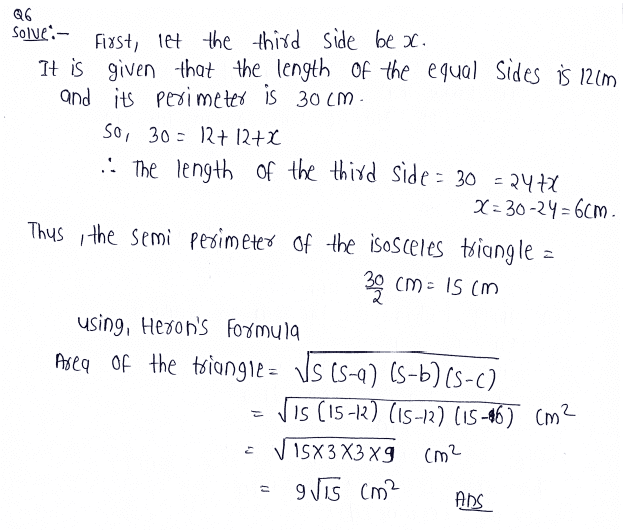 Q6
Solve:- First, let the third side be x.
It is given that the length of the equal sides is 12cm
and its perimeter is 30 cm.
So, 30 = 12+12+x
∴ The length of the third side = 30 = 24+x
x = 30-24 = 6cm.
Thus, the semi perimeter of the isosceles triangle =
30/2 cm = 15 cm
using, Heron's Formula
Area of the triangle = √s (s-a) (s-b) (s-c)
= √15 (15-12) (15-12) (15-6) cm²
= √15×3×3×9 cm²
= 9√15 cm² Ans